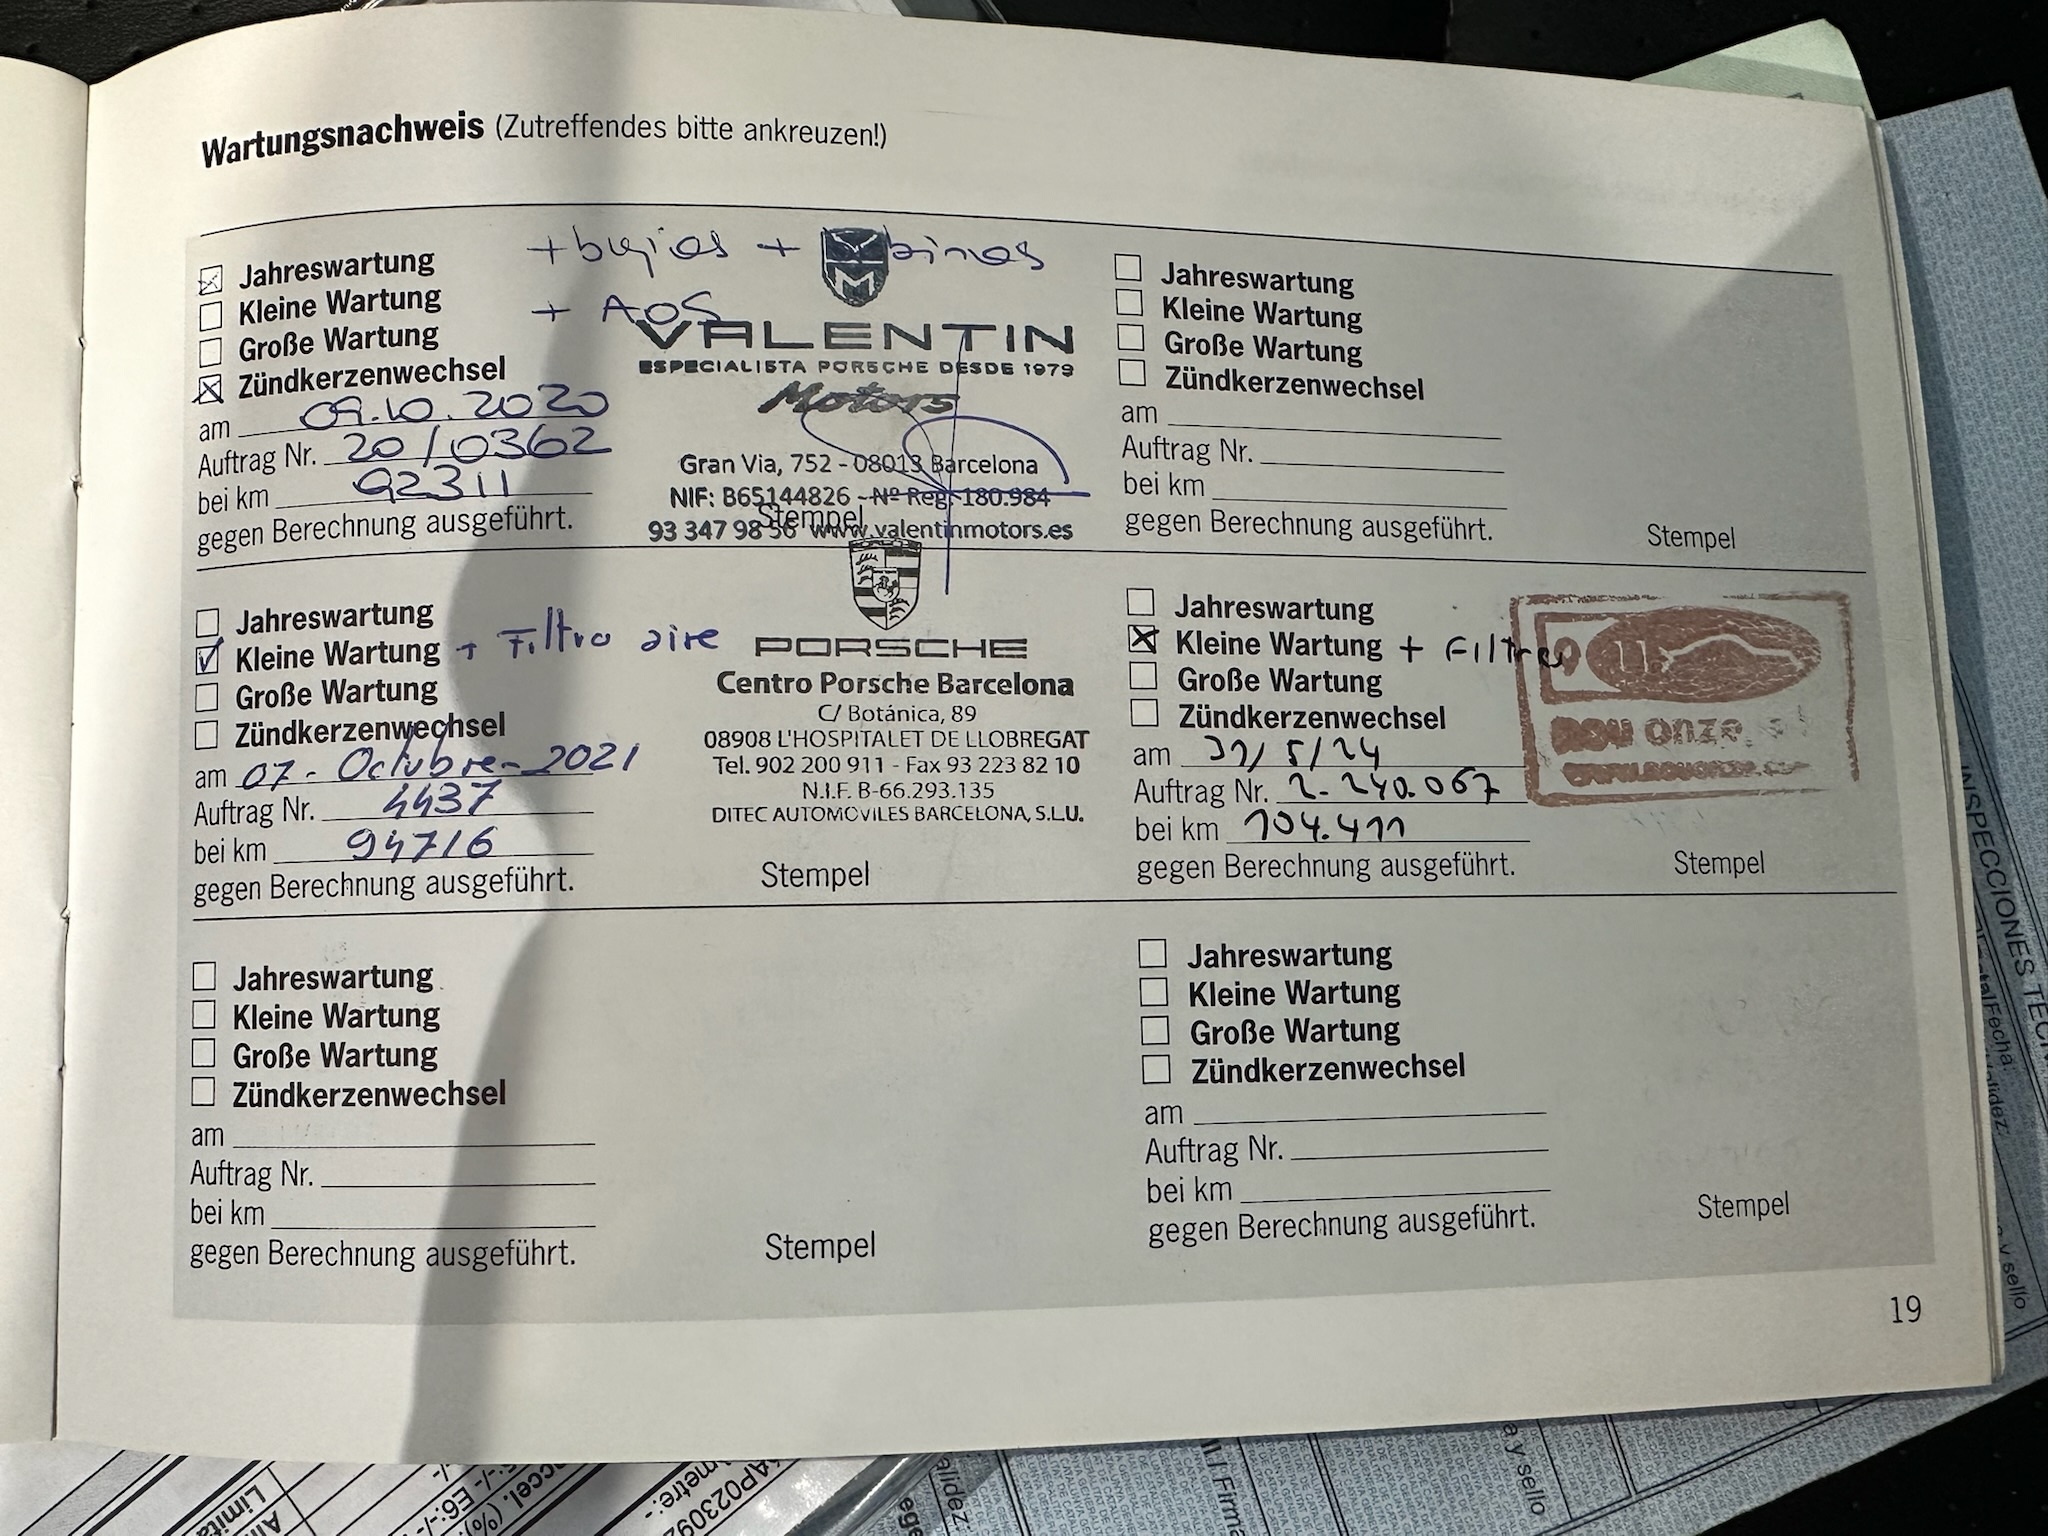 Wartungsnachweis (Zutreffendes bitte ankreuzen!)
Jahreswartung
Kleine Wartung
Große Wartung
Zündkerzenwechsel
am 09.10.2020
Auftrag Nr. 20/0362
bei km 92311
gegen Berechnung ausgeführt.
+ bujias +
+ AOS
M
VALENTIN
ESPECIALISTA PORSCHE DESDE 1979
Motors
Gran Via, 752 - 08013 Barcelona
NIF: B65144826 - Nº Reg. 180.984
93 347 98 56 www.valentinmotors.es
Stempel
Jahreswartung
Kleine Wartung + Filtro aire
Große Wartung
Zündkerzenwechsel
am 07 - Octubre - 2021
Auftrag Nr. 4437
bei km 94716
gegen Berechnung ausgeführt.
PORSCHE
Centro Porsche Barcelona
C/ Botánica, 89
08908 L'HOSPITALET DE LLOBREGAT
Tel. 902 200 911 - Fax 93 223 82 10
N.I.F. B-66.293.135
DITEC AUTOMOVILES BARCELONA, S.L.U.
Stempel
Jahreswartung
Kleine Wartung
Große Wartung
Zündkerzenwechsel
am
Auftrag Nr.
bei km
gegen Berechnung ausgeführt.
Stempel
Jahreswartung
Kleine Wartung
Große Wartung
Zündkerzenwechsel
am
Auftrag Nr.
bei km
gegen Berechnung ausgeführt.
Stempel
Jahreswartung
Kleine Wartung +
Große Wartung
Zündkerzenwechsel
am 31/5/24
Auftrag Nr. 2-240.067
bei km 104.411
gegen Berechnung ausgeführt.
9 11
nou onze
Stempel
Jahreswartung
Kleine Wartung
Große Wartung
Zündkerzenwechsel
am
Auftrag Nr.
bei km
gegen Berechnung ausgeführt.
Stempel
19
INSPECCIONES
Fecha
y sello
a y sello
Firma